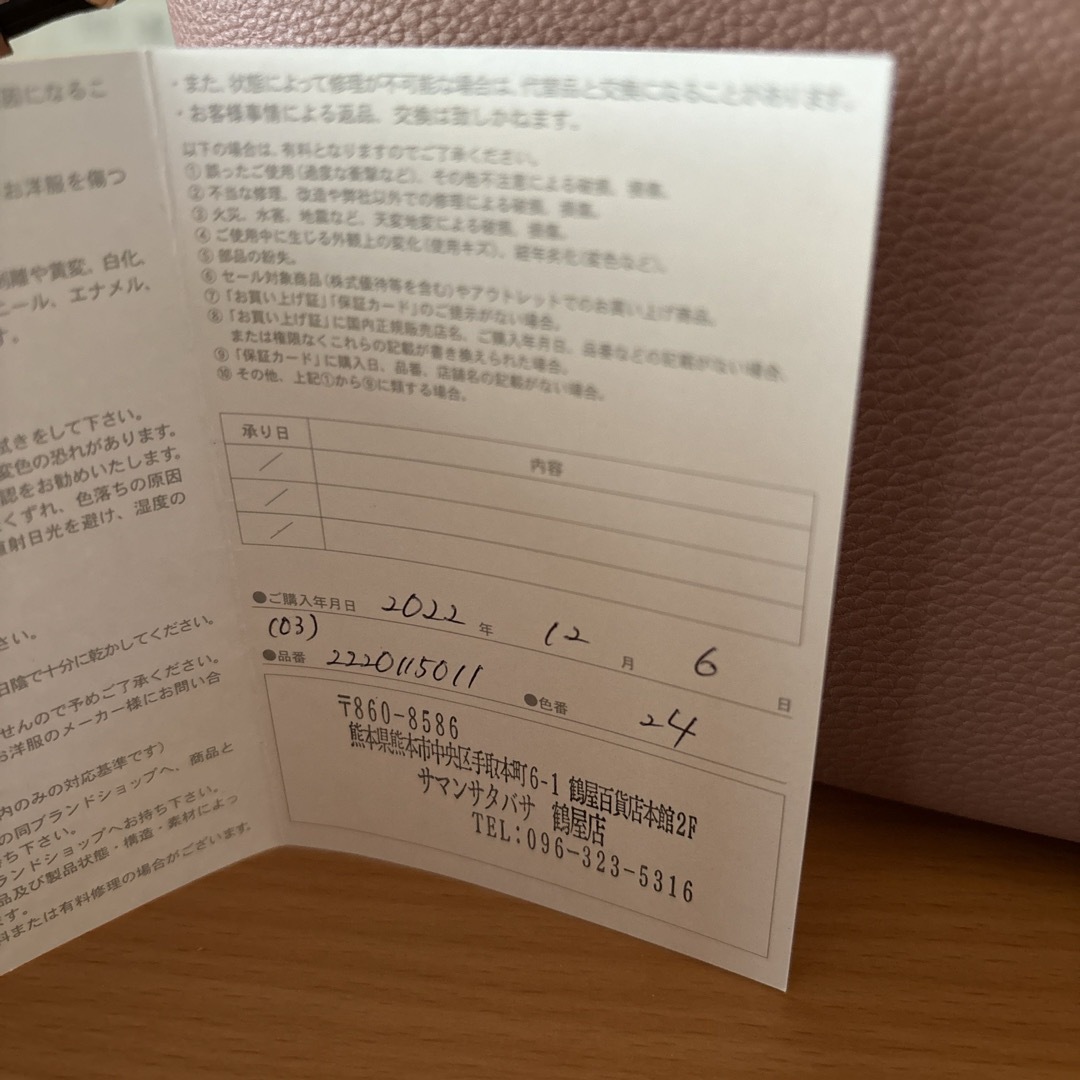 因になるこ
お洋服を傷つ
剥離や黄変、白化、
ニール、エナメル、
す。
拭きをして下さい。
変色の恐れがあります。
認をお勧めいたします。
くずれ、色落ちの原因
直射日光を避け、湿度の
さい。
日陰で十分に乾かしてください。
せんので予めご了承ください。
お洋服のメーカー様にお問い合
内のみの対応基準です)
の同ブランドショップへ、商品と
ち下さい。
ランドショップへお持ち下さい。
品及び製品状態・構造・素材によっ
ます。
料または有料修理の場合がございます。
・また、状態によって修理が不可能な場合は、代替品と交換になることがあります。
・お客様事情による返品、交換は致しかねます。
以下の場合は、有料となりますのでご了承ください。
① 誤ったご使用(過度な衝撃など)、その他不注意による破損、損傷。
② 不当な修理、改造や弊社以外での修理による破損、損傷。
③ 火災、水害、地震など、天変地変による破損、損傷。
④ ご使用中に生じる外観上の変化(使用キズ)、経年劣化(変色など)。
⑤ 部品の紛失。
⑥ セール対象商品(株式優待等を含む)やアウトレットでのお買い上げ商品。
⑦ 「お買い上げ証」「保証カード」のご提示がない場合。
⑧ 「お買い上げ証」に国内正規販売店名、ご購入年月日、品番などの記載がない場合、
または権限なくこれらの記載が書き換えられた場合。
⑨ 「保証カード」に購入日、品番、店舗名の記載がない場合。
⑩ その他、上記①から⑨に類する場合。
承り日 内容
／
／
／
●ご購入年月日 2022 年 12 月 6 日
(03)
●品番 2220115011 ●色番 24
〒860-8586
熊本県熊本市中央区手取本町6-1 鶴屋百貨店本館2F
サマンサタバサ 鶴屋店
TEL:096-323-5316